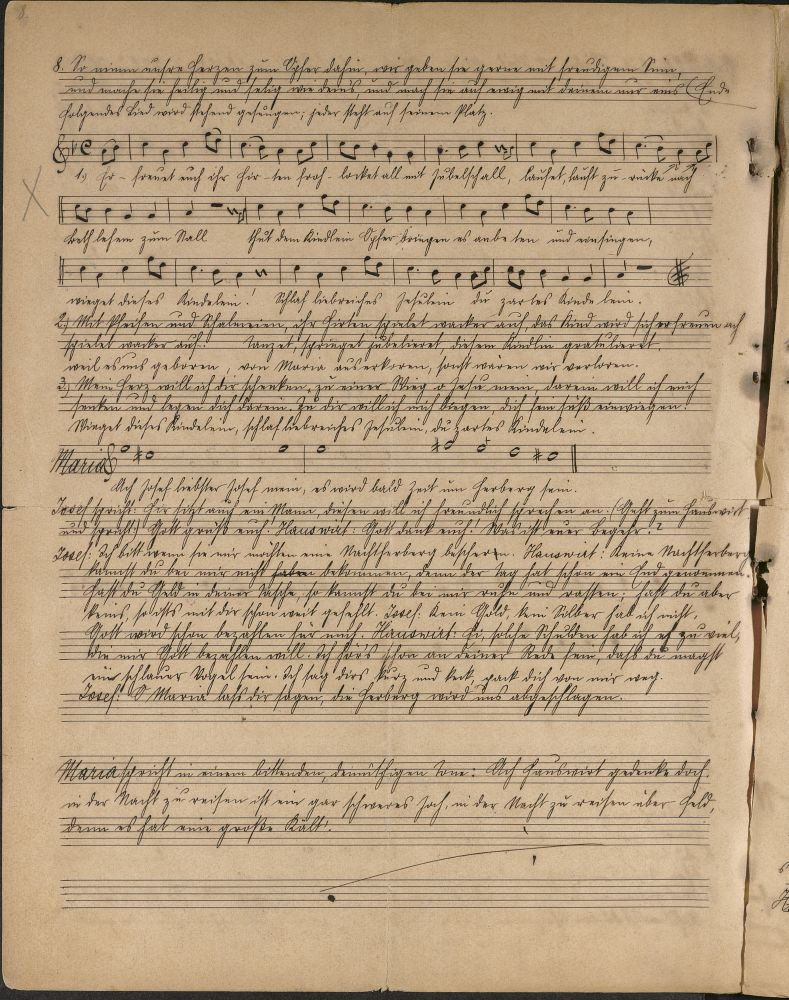 8.
8. So nimm unsre Herzen zum Opfer dahin, wir geben sie gerne mit freudigem Sinn,
und mache sie heilig und selig wie deins und mach sie auf ewig mit deinem nur eins (Ende
folgendes Lied wird stehend gesungen; jeder steht auf seinem Platz.
1.) Er-freuet euch ihr Hir-ten froh-locket all mit Jubelschall, laufet, lauft zu-rücke nach
Beth lehem zum Stall thut dem Kindlein Opfer bringen es anbe ten und einsingen,
wieget dieses Kindelein! Schlaf liebreiches Jesulein du zartes Kinde lein.
2.) Mit Pfeifen und Schalmeien, ihr Hirten spielet wacker auf, das Kind wird sich erfreuen ach
spielet wacker auf! Tanzet, springet jubelieret, diesem Kindlein gratulieret,
weil es uns geboren, von Maria auserkoren, sonst wären wir verloren.
3.) Mein Herz will ich dir schenken, zu einer Wieg o Jesu mein, darein will ich mich
senken und legen dich darein. Zu dir will ich mich biegen, dich fein süß einwiegen!
Wieget dieses Kindelein, schlaf liebreiches Jesulein, du zartes Kindelein.
Maria
Ach Josef liebster Josef mein, es wird bald Zeit um Herberg sein.
Josef spricht: Hir sitzt auch ein Mann, diesen will ich freundlich sprechen an. (Geht zum Hauswirt
und spricht) Gott grüß euch! Hauswirt: Gott dank euch! Was ist euer Begehr?
Josef: Ich bitt wenn sie mir möchten eine Nachtherberg bescheren. Hauswirt: Keine Nachtherberg
kannst du bei mir nicht haben bekommen, denn der Tag hat schon ein End genommen.
Hast du Geld in deiner Tasche, so kannst du bei mir ruhn und rasten; hast du aber
keins, so ists mit dir schon weit gefehlt. Josef: Kein Gold, kein Silber hab ich nicht,
Gott wird schon bezahlen für mich. Hauswirt: Ei, solche Schulden hab ich zu viel,
die mir Gott bezahlen will. Ich hör's schon an deiner Rede fein, daß du magst
ein schlauer Vogel sein. Ich sag dirs kurz und keck, pack dich von mir weg.
Josef: O Maria laß dir sagen, die Herberg wird uns abgeschlagen.
Maria spricht in einem bittenden, demüthigen Tone: Ach Hauswirt gedenke doch.
in der Nacht zu reisen ist ein gar schweres Joch, in der Nacht zu reisen über Feld,
denn es hat eine große Kält!